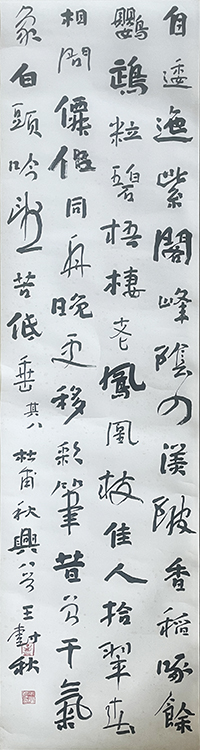 自逶迤紫閣峰陰入渼陂香稻啄餘
鸚鵡粒碧梧棲老鳳凰枝佳人拾翠春
相問僊侶同舟晚更移彩筆昔曾干氣
象白頭吟望苦低垂 其八 杜甫秋興八首 王